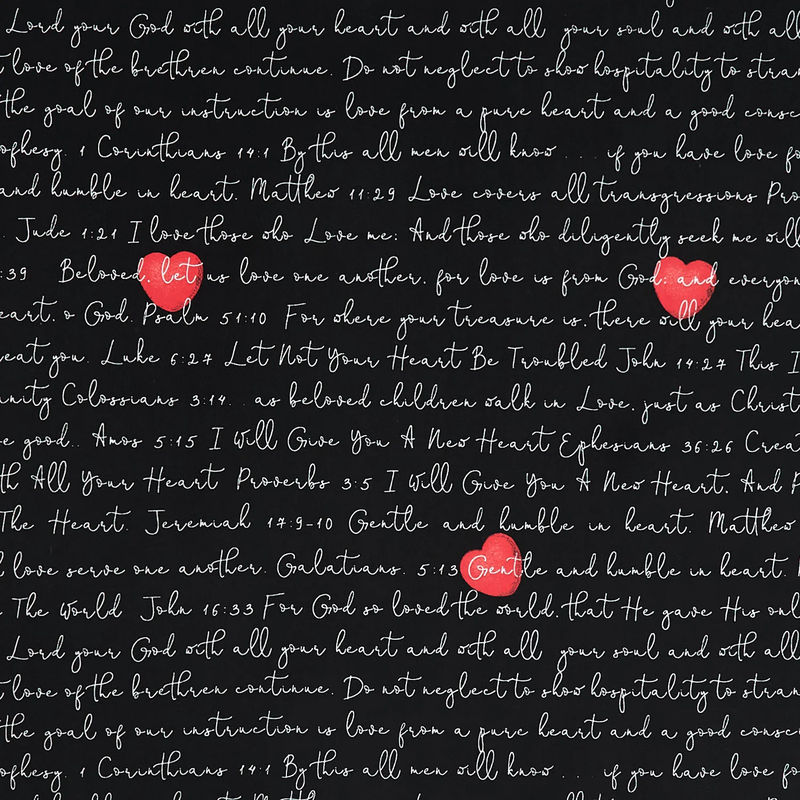 Lord your God with all your heart and with all your soul and with all
love of the brethren continue. Do not neglect to show hospitality to stran
the goal of our instruction is love from a pure heart and a good consc
ophesy. 1 Corinthians 14:1 By this all men will know . . . if you have love fo
and humble in heart. Matthew 11:29 Love covers all transgressions Pro
. Jude 1:21 I love those who Love me; And those who diligently seek me will
:39 Beloved, let us love one another, for love is from God; and everyon
eart, o God. Psalm 51:10 For where your treasure is, there will your hea
eat you. Luke 6:27 Let Not Your Heart Be Troubled John 14:27 This I
unity Colossians 3:14 . . as beloved children walk in Love, just as Christ
e good.. Amos 5:15 I Will Give You A New Heart Ephesians 36:26 Crea
th All Your Heart Proverbs 3:5 I Will Give You A New Heart, And P
The Heart. Jeremiah 17:9-10 Gentle and humble in heart. Matthew
love serve one another. Galatians. 5:13 Gentle and humble in heart.
The World John 16:33 For God so loved the world, that He gave His onl
Lord your God with all your heart and with all your soul and with all
love of the brethren continue. Do not neglect to show hospitality to stran
the goal of our instruction is love from a pure heart and a good consc
ophesy. 1 Corinthians 14:1 By this all men will know . . . if you have love fo